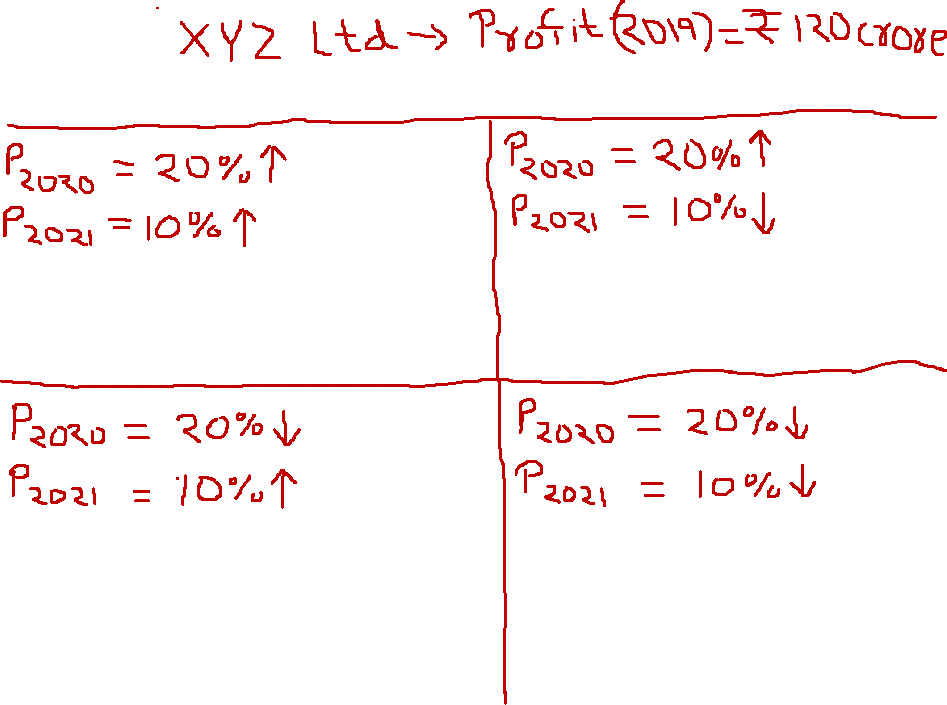 XYZ Ltd → Profit (2019) = ₹ 120 crore
P2020 = 20% ↑
P2021 = 10% ↑
P2020 = 20% ↑
P2021 = 10% ↓
P2020 = 20% ↓
P2021 = 10% ↑
P2020 = 20% ↓
P2021 = 10% ↓